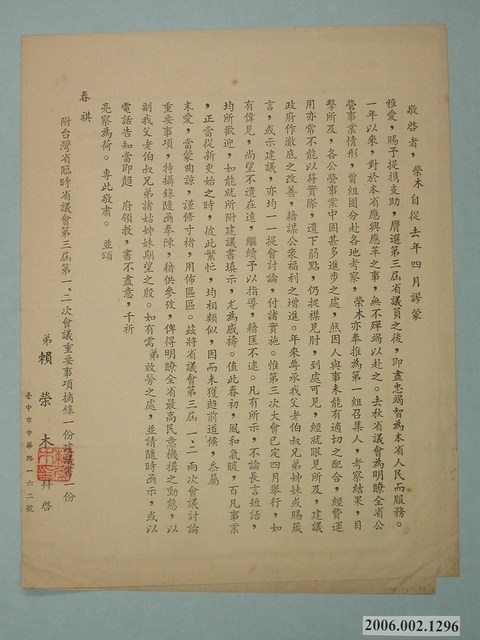 敬啓者，榮木自從去年四月謬蒙
雅愛，賜予提携支助，膺選第三屆省議員之後，即盡忠竭智為本省人民而服務。
一年以來，對於本省應興應革之事，無不殫竭以赴之。去秋省議會為明瞭全省公
營事業情形，曾組團分赴各地考察，榮木亦奉推為第一組召集人，考察結果，目
擊所及，各公營事業中固甚多進步之處，然因人與事未能有適切之配合，經費運
用亦常不能以符實際，遺下弱點，仍捉襟見肘，到處可見，經就眼見所及，建議
政府作澈底之改善，藉謀公衆福利之增進。年來辱承我父老伯叔兄弟姊妹或賜箴
言，或示建議，亦均一一提會討論，付諸實施。惟第三次大會已定四月舉行，如
有偉見，尚望不遺在遠，繼續予以指導，藉匡不逮。凡有所示，不論長言短語，
均所歡迎，如能就所附建議書填示，尤為感禱。值此春初，風和氣暖，百凡事業
，正當從新更始之時，彼此繁忙，均相類似，因而未獲趨前道候，忝屬
末愛，當蒙曲諒，謹修寸楮，用佈區區。茲將省議會第三屆一、二兩次會議討論
重要事項，特摘錄隨函奉陳，藉供參攷，俾得明瞭全省最高民意機構之動態，以
副我父老伯叔兄弟諸姑姊妹期望之殷。如有需弟效勞之處，並請隨時函示，或以
電話告知當即趨　府領教，書不盡意，千祈
亮察為荷。專此敬肅。並頌
春祺
弟　賴　榮　木　拜啓
臺中市中華路一六二號
附台灣省臨時省議會第三屆第一、二次會議重要事項摘錄一份建議書一份
2006.002.1296